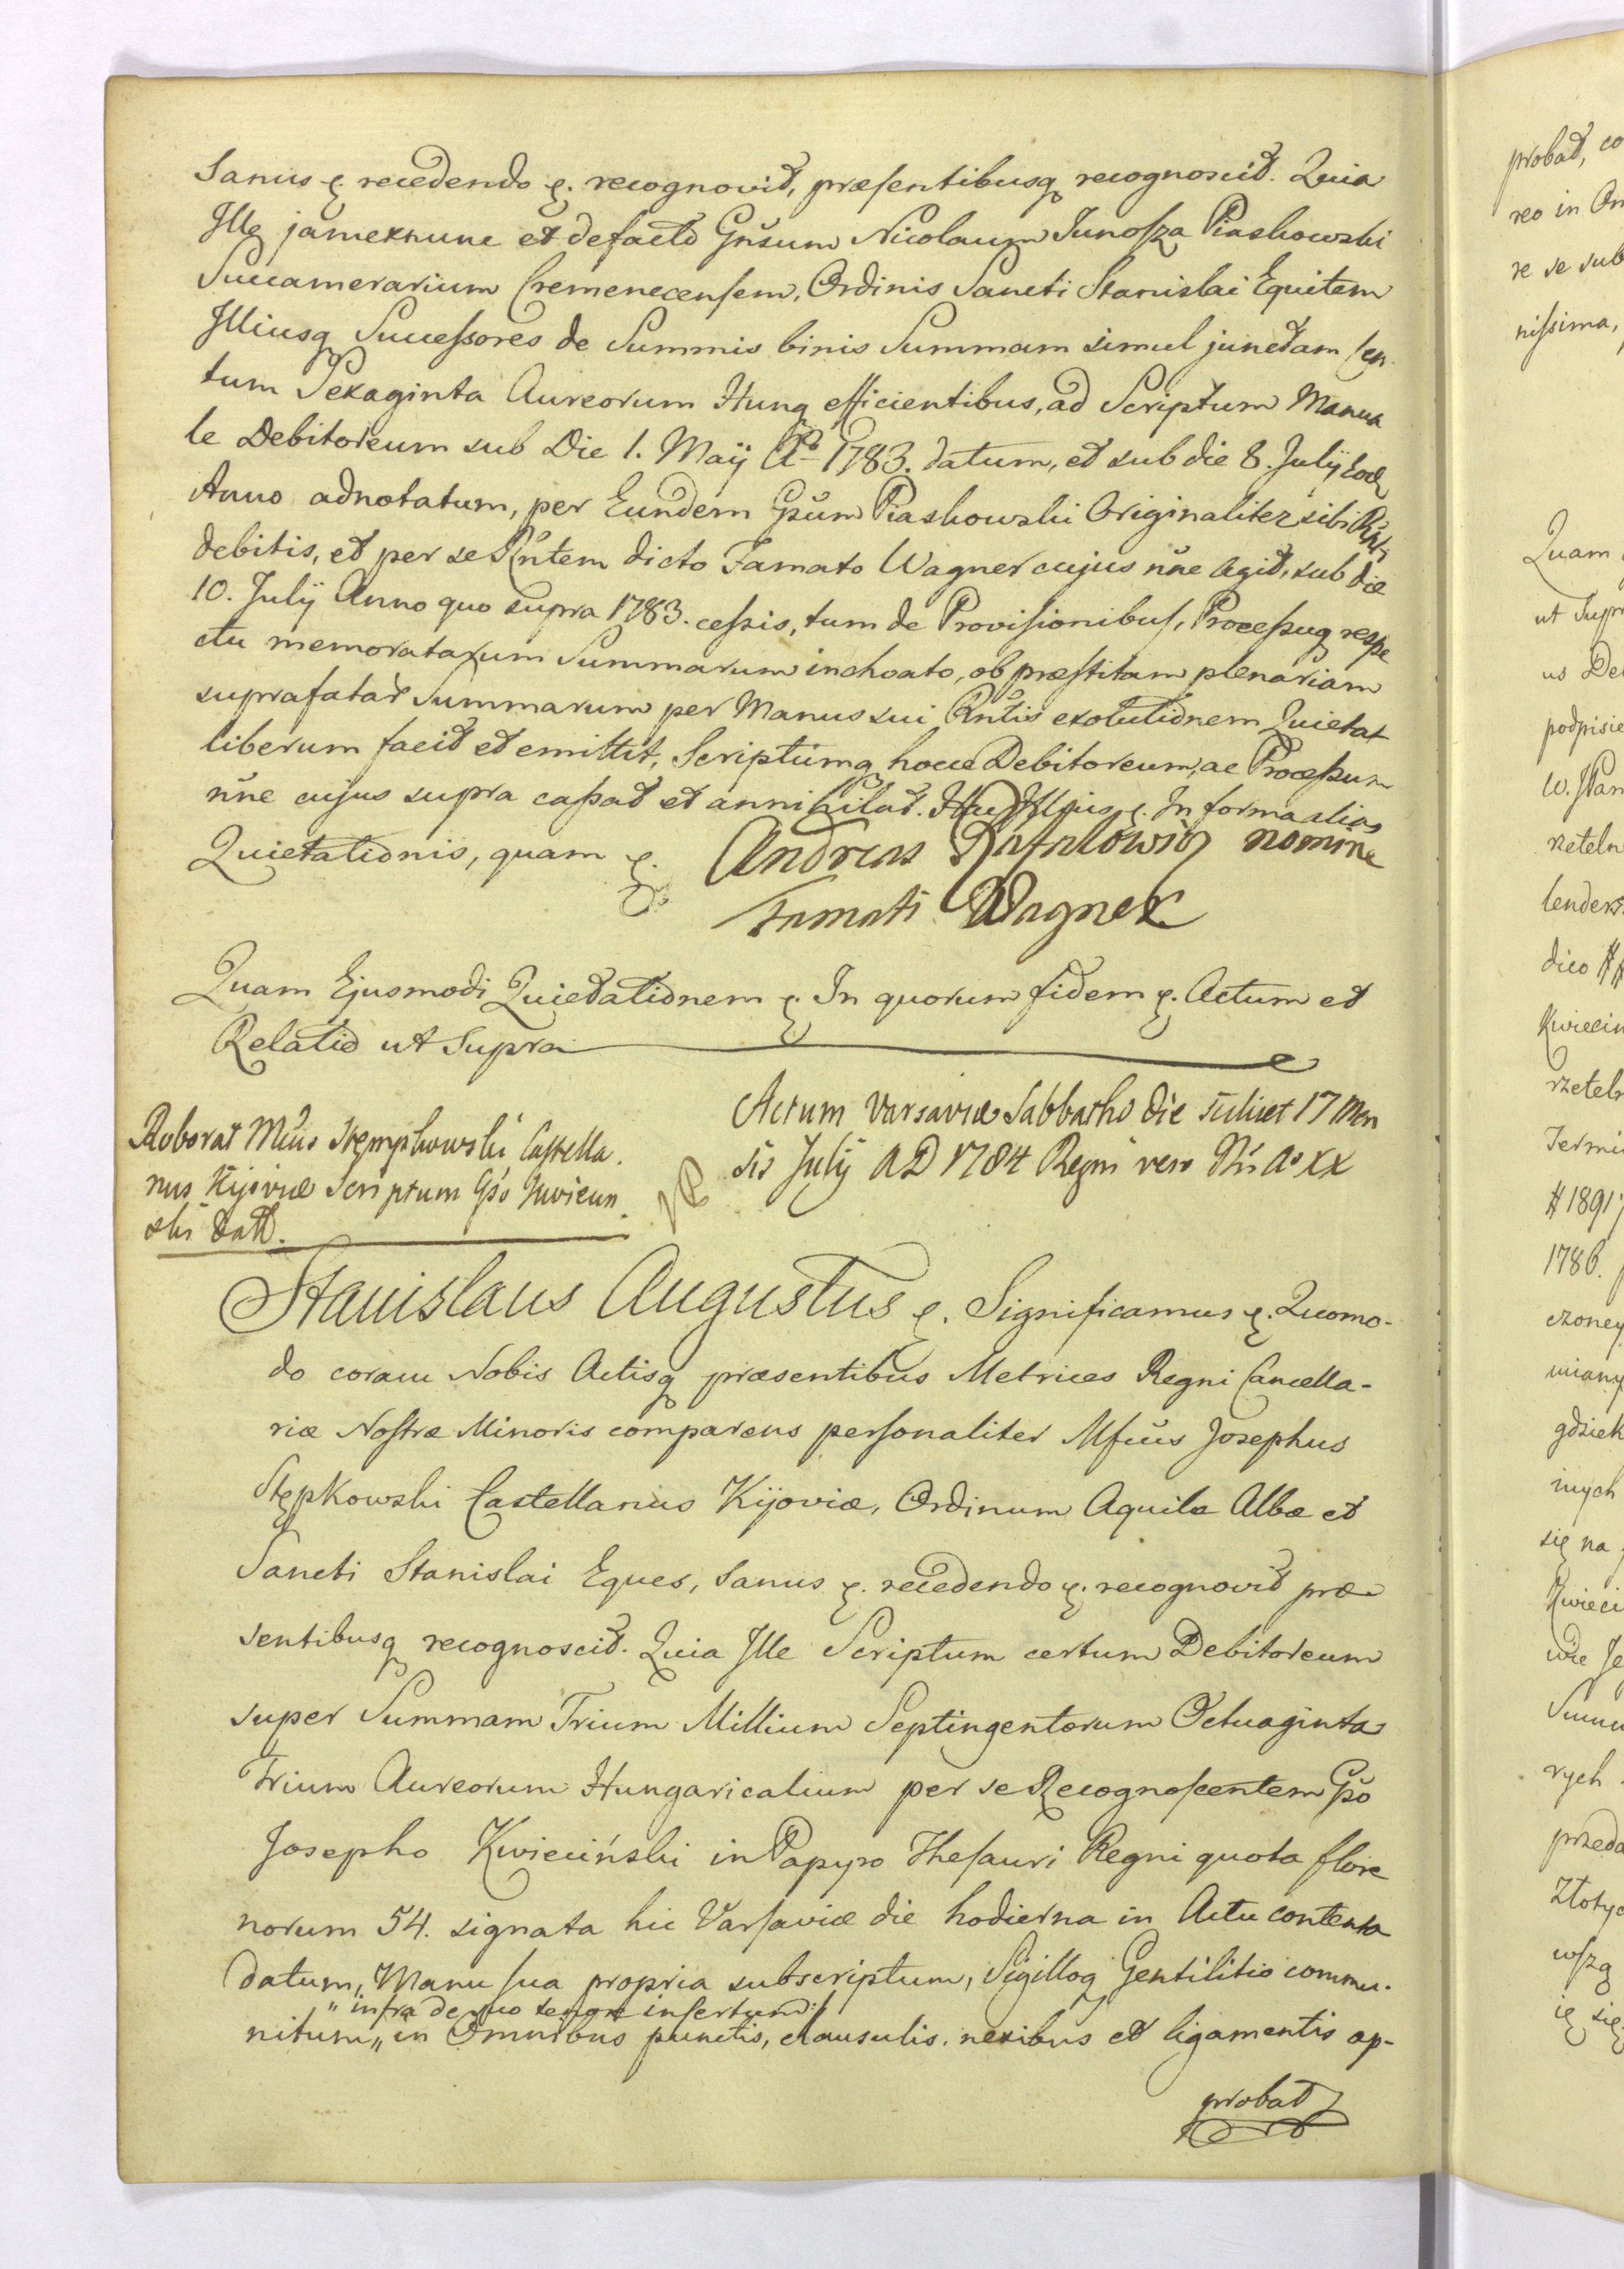 Sanus ę. recedendo ę. recognovit, præsentibusq recognoscit. Quia
Ille jamexnunc et defacto Gnsum Nicolaum Junosza Piaskowski
Succamerarium Cremenecensem, Ordinis Sancti Stanislai Equitem
Illiusq Successores de Summis binis Summam simul junctam Cen-
tum Sexaginta Aureorum Hung efficientibus, ad Scriptum Manua
le Debitoreum sub Die 1. Maij Ao 1783. datum, et sub die 8. Julij Eod
Anno adnotatum, per Eundem Gsum Piaskowski Originaliter sibi
debitis, et per se Rntem dicto Famato Wagner cujus nne agit, sub die
10. Julij Anno quo supra 1783. cessis, tum de Provisionibus, Processuq respe
ctu memoratarum Summarum inchoato, ob præstitam plenariam
suprafatar Summarum per Manus sui Rntis exolutionem Quietat
liberum facit et emittit, Scriptumq hocce Debitoreum, ac Processum
nne cujus supra cassat et annihilat. In forma alias
Quietationis, quam ę.
Andreas Rafalowicz nomine
Famati Wagner
Quam Ejusmodi Quietationem ę. In quorum fidem ę. Actum et
Relatio ut Supra
Roborat Mcus Stempkowski Castella.
nus Kijoviæ Scriptum Gso Kwiecin
ski Datt.
Actum Varsaviæ Sabbatho die scilicet 17 Men
sis Julij AD 1784 Regni vero Nri Ao XX
Stanislaus Augustus ę. Significamus ę. Quomo-
do coram Nobis Actisq præsentibus Metrices Regni Cancella-
riæ Nostræ Minoris comparens personaliter Mfcus Josephus
Stępkowski Castellanus Kijoviæ, Ordinum Aquilæ Albæ et
Sancti Stanislai Eques, sanus ę. recedendo ę. recognovit præ
sentibusq recognoscit. Quia Ille Scriptum certum Debitoreum
super Summam Trium Millium Septingentorum Octuaginta
Trium Aureorum Hungaricalium per se Recognoscentem Gso
Josepho Kwieciński in Papyro Thesauri Regni quota flore
norum 54. signata hic Varsaviæ die hodierna in Actu contenta
datum, Manu sua propria subscriptum, Sigilloq Gentilitio commu-
„ infra de quo tenore insertum
nitum „ in Omnibus punctis, clausulis, nexibus et ligamentis ap-
probat